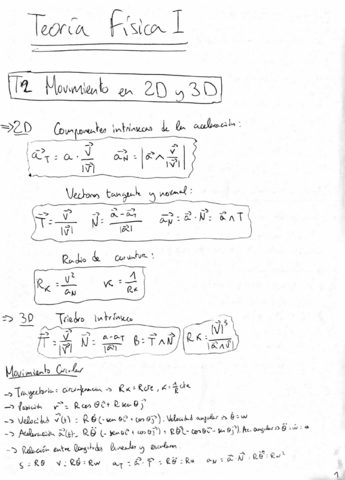 Teoría Física I
T2 Movimiento en 2D y 3D
⇒ 2D Componentes intrínsecas de la aceleración:
a⃗_T = a · v⃗/|v⃗|   a⃗_N = |a⃗ ∧ v⃗/|v⃗||
Vectores tangente y normal:
T⃗ = v⃗/|v⃗|   N⃗ = (a⃗ - a⃗_T)/|a⃗|   a⃗_N = a⃗ · N⃗ = a⃗ ∧ T
Radio de curvatura:
R_K = v²/a_N   K = 1/R_K
⇒ 3D Triedro Intrínseco
T⃗ = v⃗/|v⃗|   N⃗ = (a - a_T)/|a⃗|   B = T⃗ ∧ N⃗   R_K = |v⃗|³/|a⃗ ∧ v⃗|
Movimiento Circular
→ Trayectoria: circunferencia → R_K = R cte, K = 1/R cte
→ Posición r⃗ = R cos θ i⃗ + R sen θ j⃗
→ Velocidad v⃗(t) = R θ̇ (-sen θ i⃗ + cos θ j⃗). Velocidad angular θ̇ = w
→ Aceleración a⃗(t) = R θ̈ (-sen θ i⃗ + cos θ j⃗) + R θ̇² (-cos θ i⃗ - sen θ j⃗). Ac. angular
→ Relación entre longitudes lineales y
s = Rθ   v = Rθ̇ = Rw   a_T = a⃗ · T⃗ = Rθ̈ = Rα   a_N = a⃗ · N⃗ = Rθ̇² = Rw²
1